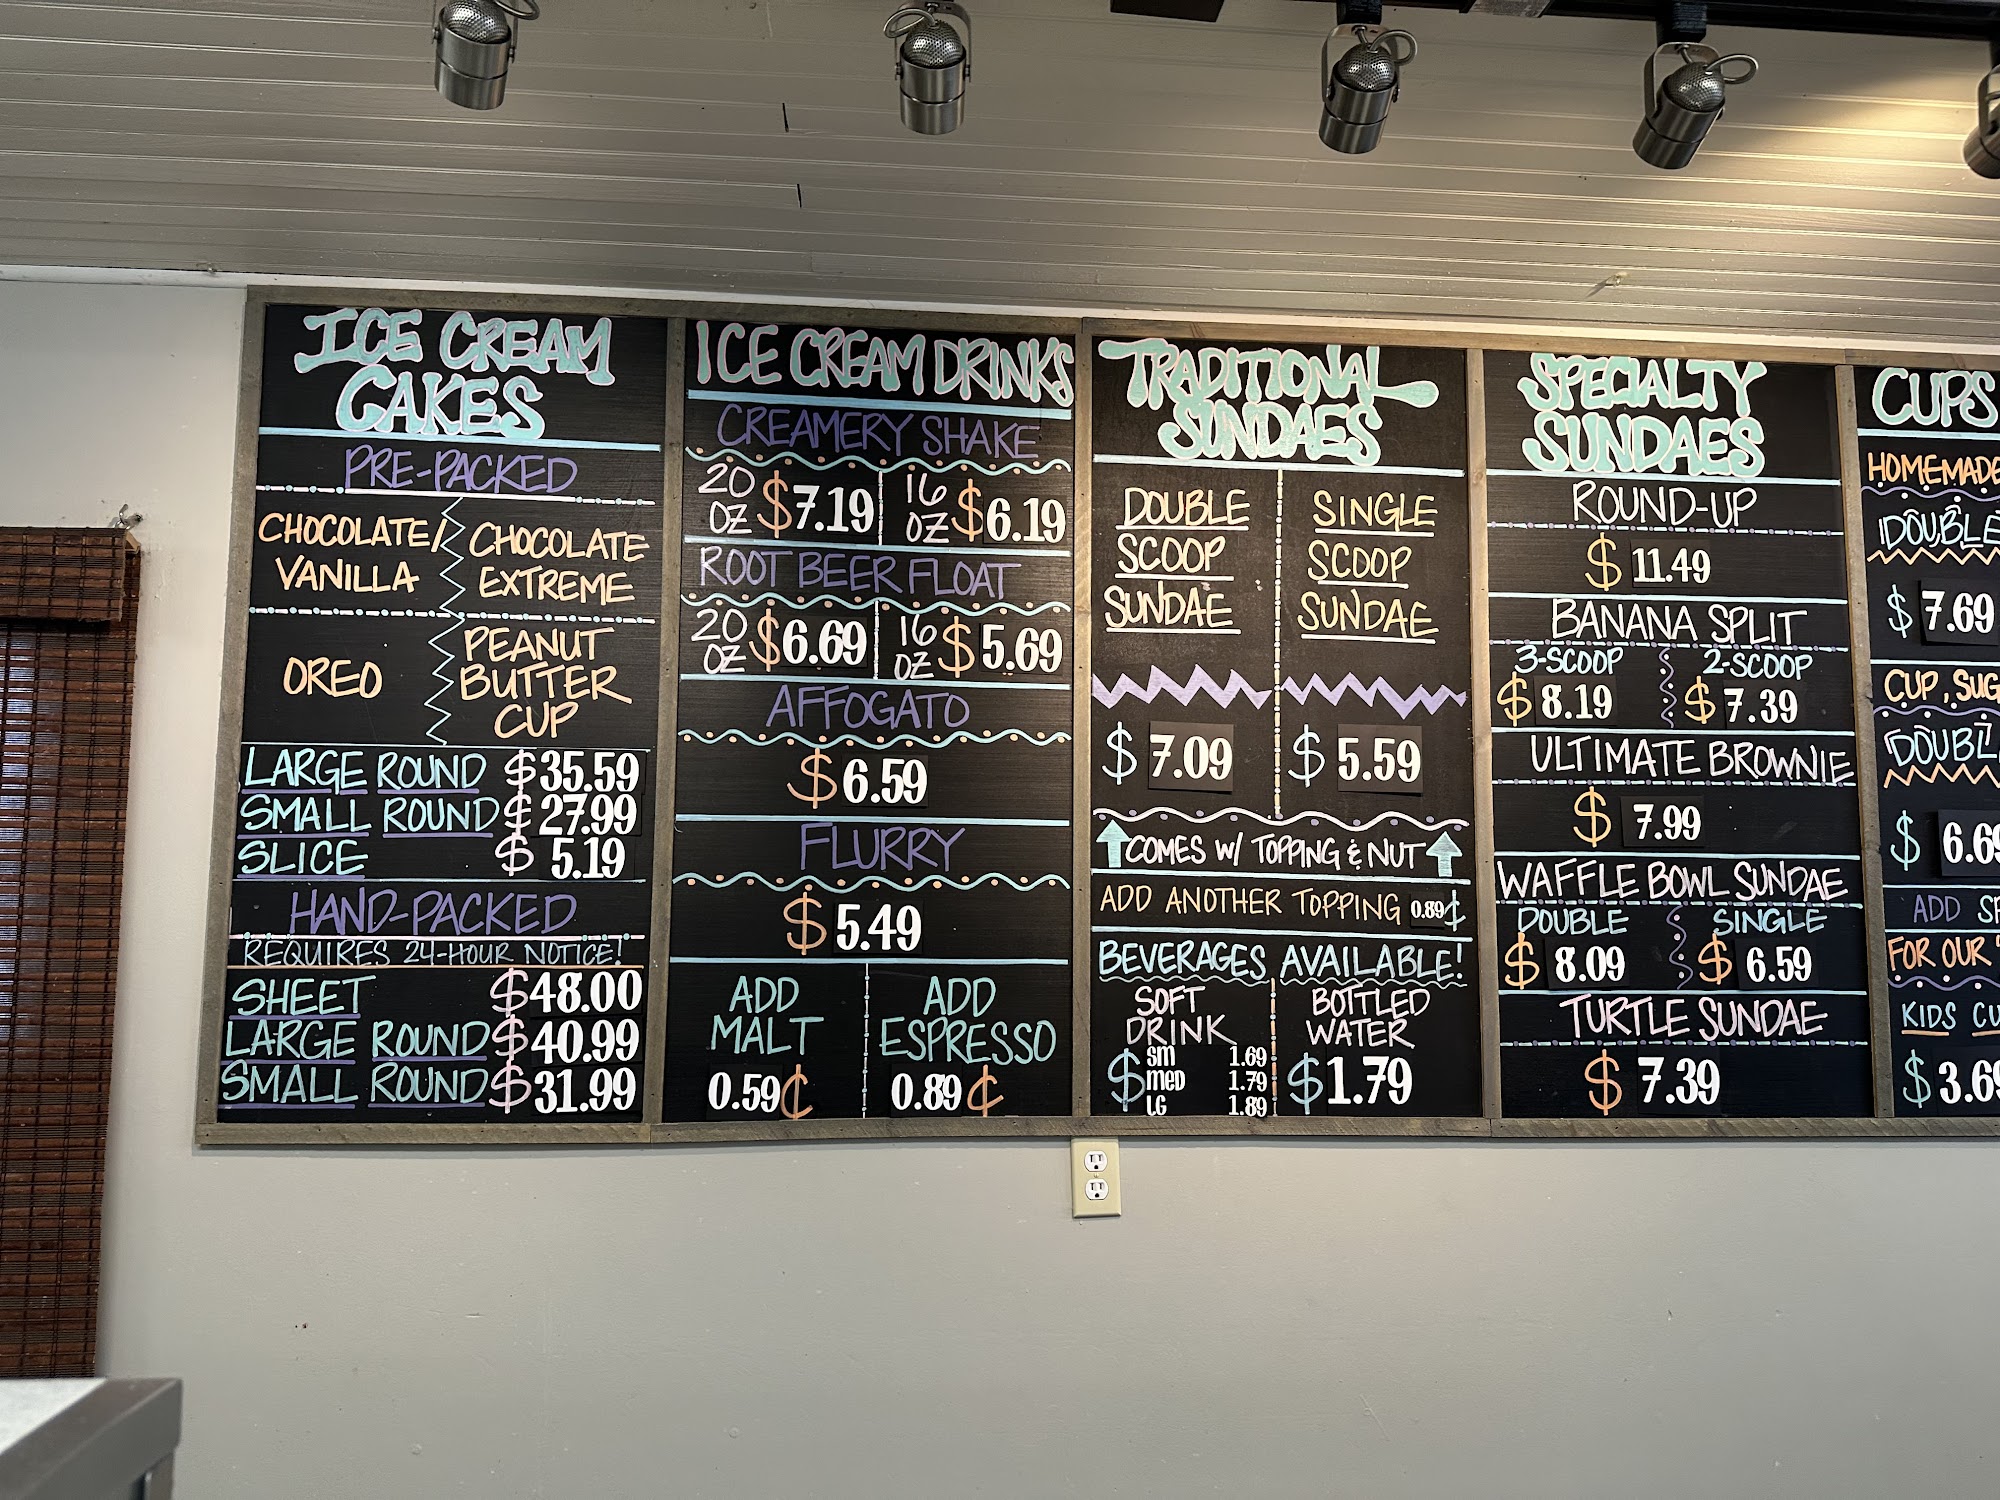 ICE CREAM
CAKES
PRE-PACKED
CHOCOLATE/
VANILLA
CHOCOLATE
EXTREME
OREO
PEANUT
BUTTER
CUP
LARGE ROUND $35.59
SMALL ROUND $27.99
SLICE $5.19
HAND-PACKED
REQUIRES 24-HOUR NOTICE!
SHEET $48.00
LARGE ROUND $40.99
SMALL ROUND $31.99
ICE CREAM DRINKS
CREAMERY SHAKE
20 OZ $7.19 16 OZ $6.19
ROOT BEER FLOAT
20 OZ $6.69 16 OZ $5.69
AFFOGATO
$6.59
FLURRY
$5.49
ADD
MALT
0.59¢
ADD
ESPRESSO
0.89¢
TRADITIONAL
SUNDAES
DOUBLE
SCOOP
SUNDAE
$7.09
SINGLE
SCOOP
SUNDAE
$5.59
COMES W/ TOPPING & NUT
ADD ANOTHER TOPPING 0.89¢
BEVERAGES AVAILABLE!
SOFT
DRINK
$ SM 1.69
MED 1.79
LG 1.89
BOTTLED
WATER
$1.79
SPECIALTY
SUNDAES
ROUND-UP
$11.49
BANANA SPLIT
3-SCOOP 2-SCOOP
$8.19 $7.39
ULTIMATE BROWNIE
$7.99
WAFFLE BOWL SUNDAE
DOUBLE SINGLE
$8.09 $6.59
TURTLE SUNDAE
$7.39
CUPS
HOMEMADE
DOUBLE
$7.69
CUP,
$6.69
ADD
FOR OUR
KIDS
$3.69